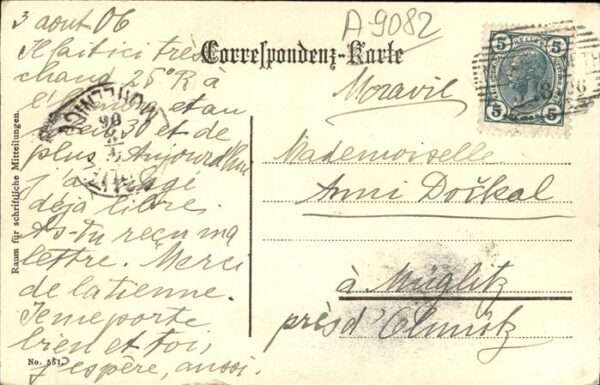 3 aout 06
Il fait ici très
chaud 25°R à
l'ombre et au
30 et de
plus. Aujourd'hui
j'ai
déjà libre.
As-tu reçu ma
lettre. Merci
de la tienne.
Je me porte
bien et toi,
j'espère, aussi.
Raum für schriftliche Mitteilungen.
No.
A-9082
Correspondenz-Karte
5 5
5 5
Moravie
Mademoiselle
Anni Doškal
à Müglitz
près d'Olmütz